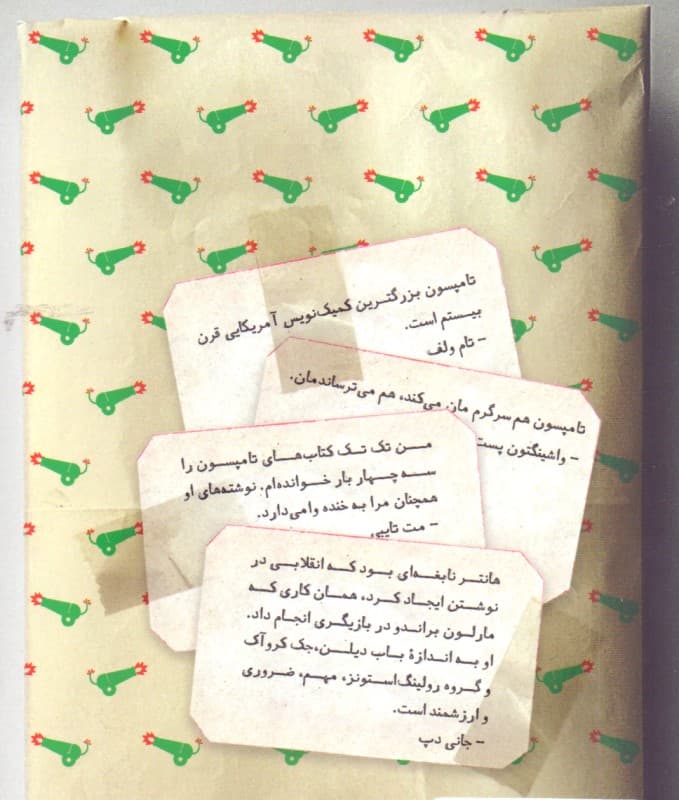 تامپسون بزرگترین کمیک‌نویس آمریکایی قرن
بیستم است.
- تام ولف
تامپسون هم سرگرم مان می‌کند، هم می‌ترساندمان.
- واشینگتون پست
من تک تک کتاب‌های تامپسون را
سه چهار بار خوانده‌ام. نوشته‌های او
همچنان مرا به خنده وامی‌دارد.
- مت تایبی
هانتر نابغه‌ای بود که انقلابی در
نوشتن ایجاد کرد، همان کاری که
مارلون براندو در بازیگری انجام داد.
او به اندازهٔ باب دیلن، جک کروآک
و گروه رولینگ‌استونز، مهم، ضروری
و ارزشمند است.
- جانی دپ